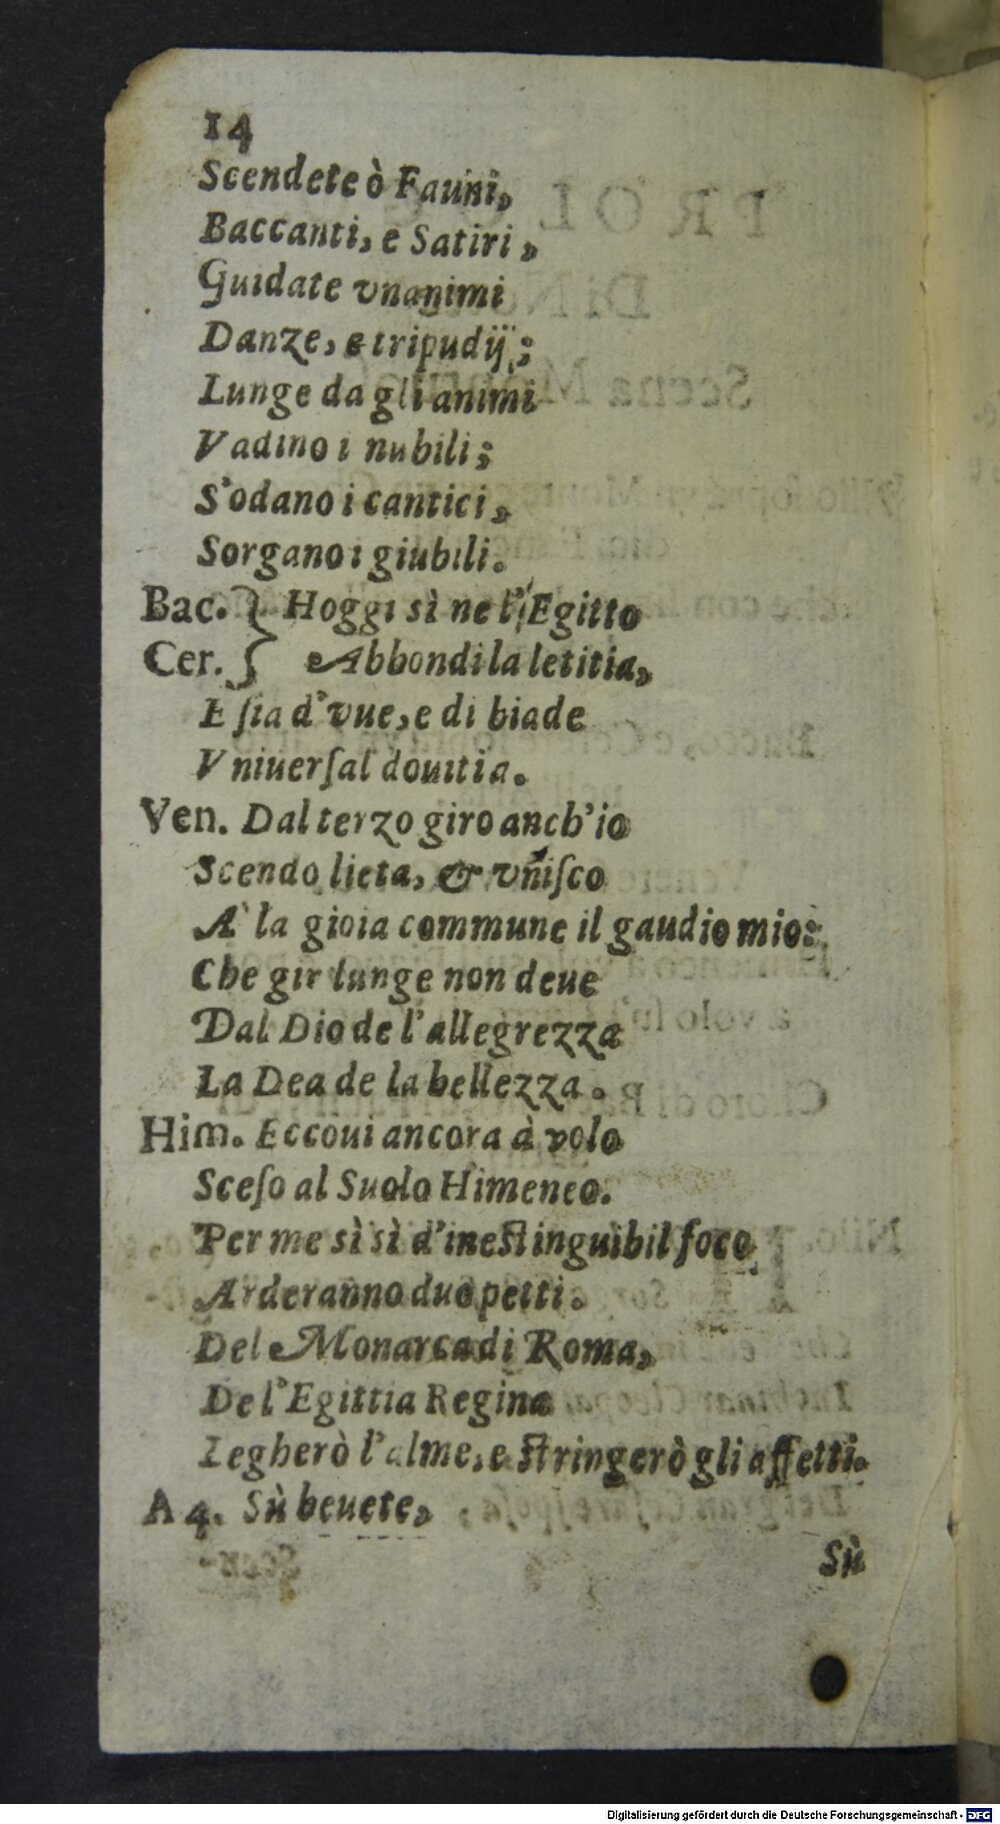 14
Scendete ò Fauni,
Baccanti, e Satiri,
Guidate vnanimi
Danze, e tripudij;
Lunge da gli animi
Vadino i nubili;
S'odano i cantici,
Sorgano i giubili.
Bac. } Hoggi sì ne l'Egitto
Cer. } Abbondi la letitia,
E ſia d'vue, e di biade
Vniuerſal douitia.
Ven. Dal terzo giro anch'io
Scendo lieta, & vniſco
A' la gioia commune il gaudio mio:
Che gir lunge non deue
Dal Dio de l'allegrezza
La Dea de la bellezza.
Him. Eccoui ancora à volo
Sceſo al Suolo Himeneo.
Per me sì sì d'ineſtinguibil foco
Arderanno duo petti.
Del Monarca di Roma,
De l'Egittia Regina
Legherò l'alme, e ſtringerò gli affetti.
A 4. Sù beuete,
Sù
Digitalisierung gefördert durch die Deutsche Forschungsgemeinschaft - DFG